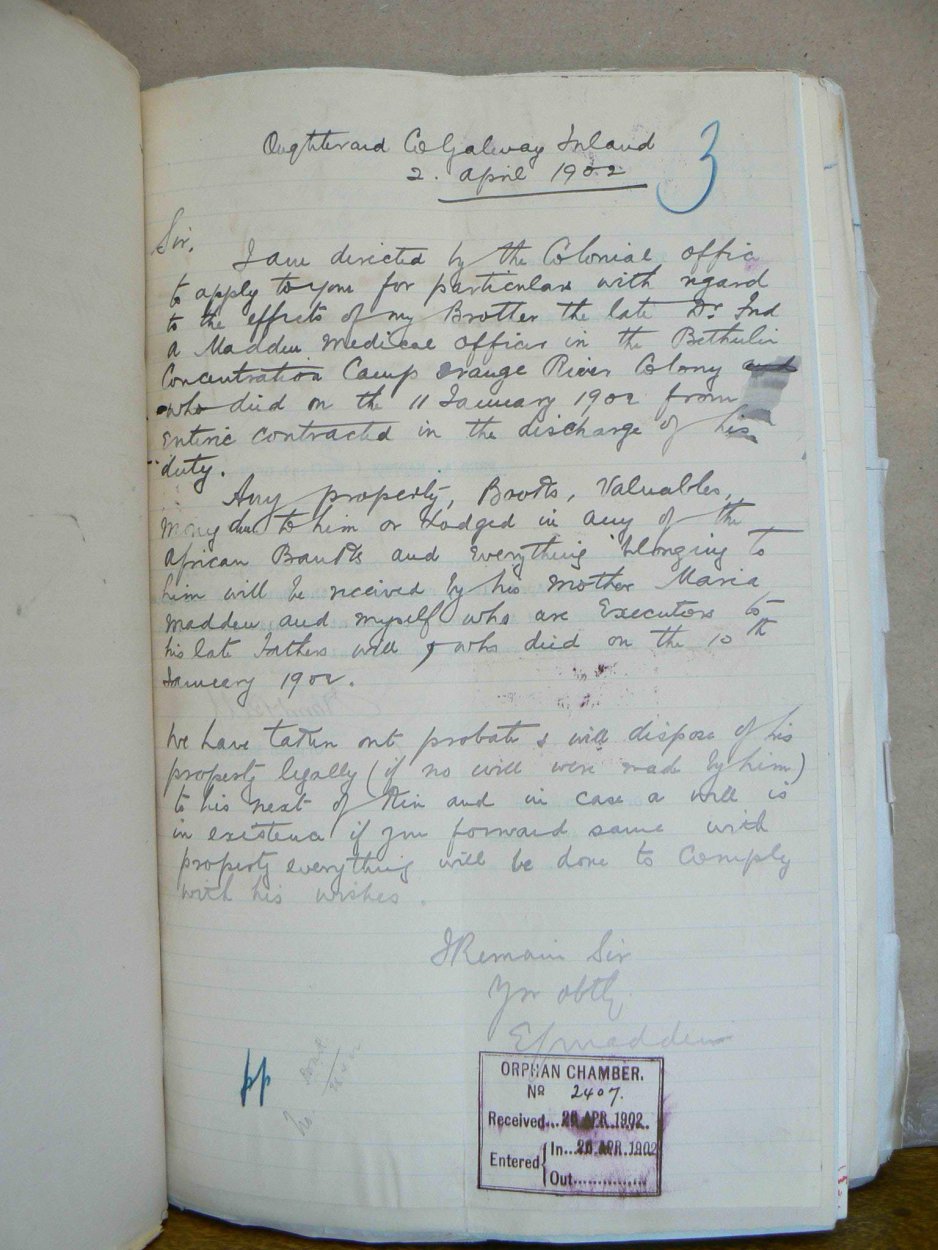 Oughterard Co Galway Ireland
3
2. April 1902
Sir,
I am directed by the Colonial office
to apply to you for particulars with regard
to the effects of my Brother the late Dr. Frd
A Madden Medical Officer in the Bethulie
Concentration Camp Orange River Colony and
who died on the 11 January 1902 from
Enteric contracted in the discharge of his
duty.
Any property, Books, Valuables,
Money due to him or lodged in any of the
African Banks and Everything belonging to
him will be received by his Mother Maria
Madden and myself who are Executors to
his late Fathers will, who died on the 10th
January 1902.
We have taken out probate & will dispose of his
property legally (if no will were made by him)
to his next of Kin and in case a will is
in existence if you forward same with
property everything will be done to comply
with his wishes.
I Remain Sir
Yr obtly
Madden
pp
ORPHAN CHAMBER.
No 2407.
Received... 26 APR 1902
Entered { In... 26 APR. 1902
Out...............